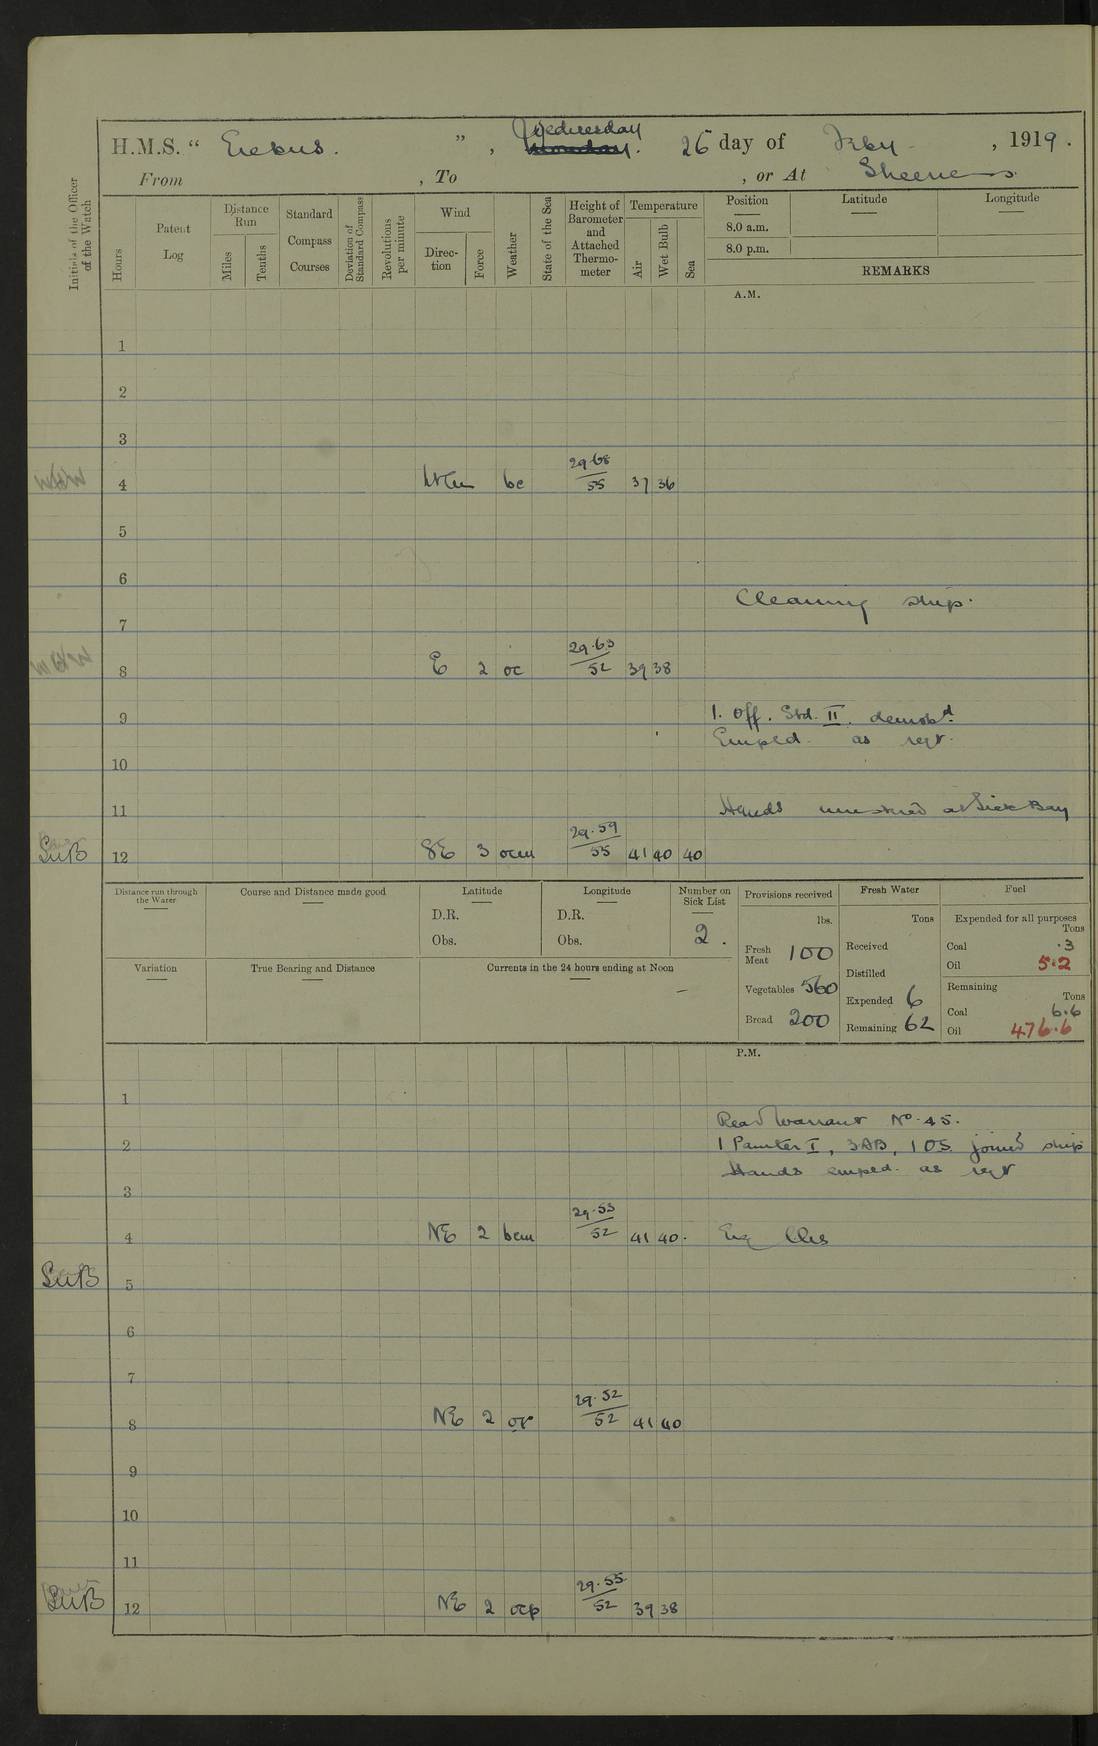 H.M.S. " Erebus. ", Wednesday Monday. 26 day of Feby , 1919.
From , To , or At Sheerness.
Initials of the Officer of the Watch
Hours
Patent Log
Distance Run
Miles
Tenths
Standard Compass Courses
Deviation of Standard Compass
Revolutions per minute
Wind
Direction
Force
Weather
State of the Sea
Height of Barometer and Attached Thermometer
Temperature
Air
Wet Bulb
Sea
Position
8.0 a.m.
8.0 p.m.
Latitude
Longitude
REMARKS
A.M.
1
2
3
4 bc 29.68 / 55 37 36
5
6
Cleaning ship.
7
8 E 2 oc 29.63 / 52 39 38
9 1. Off. Std. II. demobd.
Empld. as reqr.
10
11 Hands mustered at Sick Bay
SWB 12 SE 3 ocm 29.59 / 55 41 40 40
Distance run through the Water
Course and Distance made good
Latitude
D.R.
Obs.
Longitude
D.R.
Obs.
Number on Sick List
2.
Provisions received
lbs.
Fresh Meat 100
Vegetables 560
Bread 200
Fresh Water
Tons
Received
Distilled
Expended 6
Remaining 62
Fuel
Expended for all purposes
Tons
Coal .3
Oil 5.2
Remaining
Tons
Coal 6.6
Oil 476.6
Variation
True Bearing and Distance
Currents in the 24 hours ending at Noon
P.M.
1
Read Warrant No. 45.
2 1 Painter I, 3AB, 1 OS. joined ship
Hands empld. as reqr
3
4 NE 2 bcm 29.53 / 52 41 40.
SWB 5
6
7
8 NE 2 or 29.52 / 52 41 40
9
10
11
SWB 12 NE 2 ocp 29.55 / 52 39 38